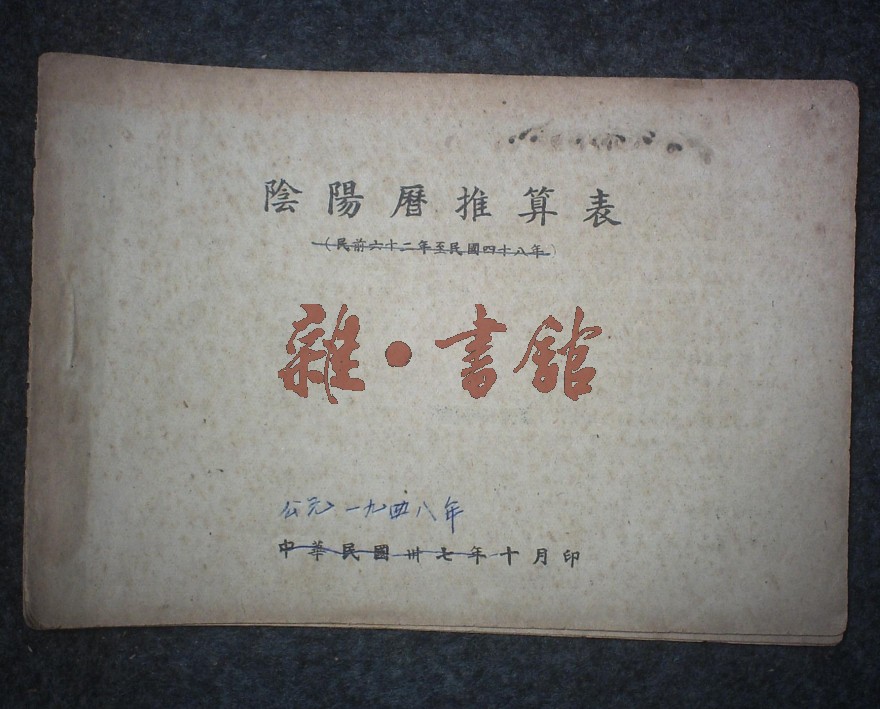 陰陽曆推算表
(民前六十二年至民國四十八年)
雜·書館
公元一九四八年
中華民國卅七年十月印